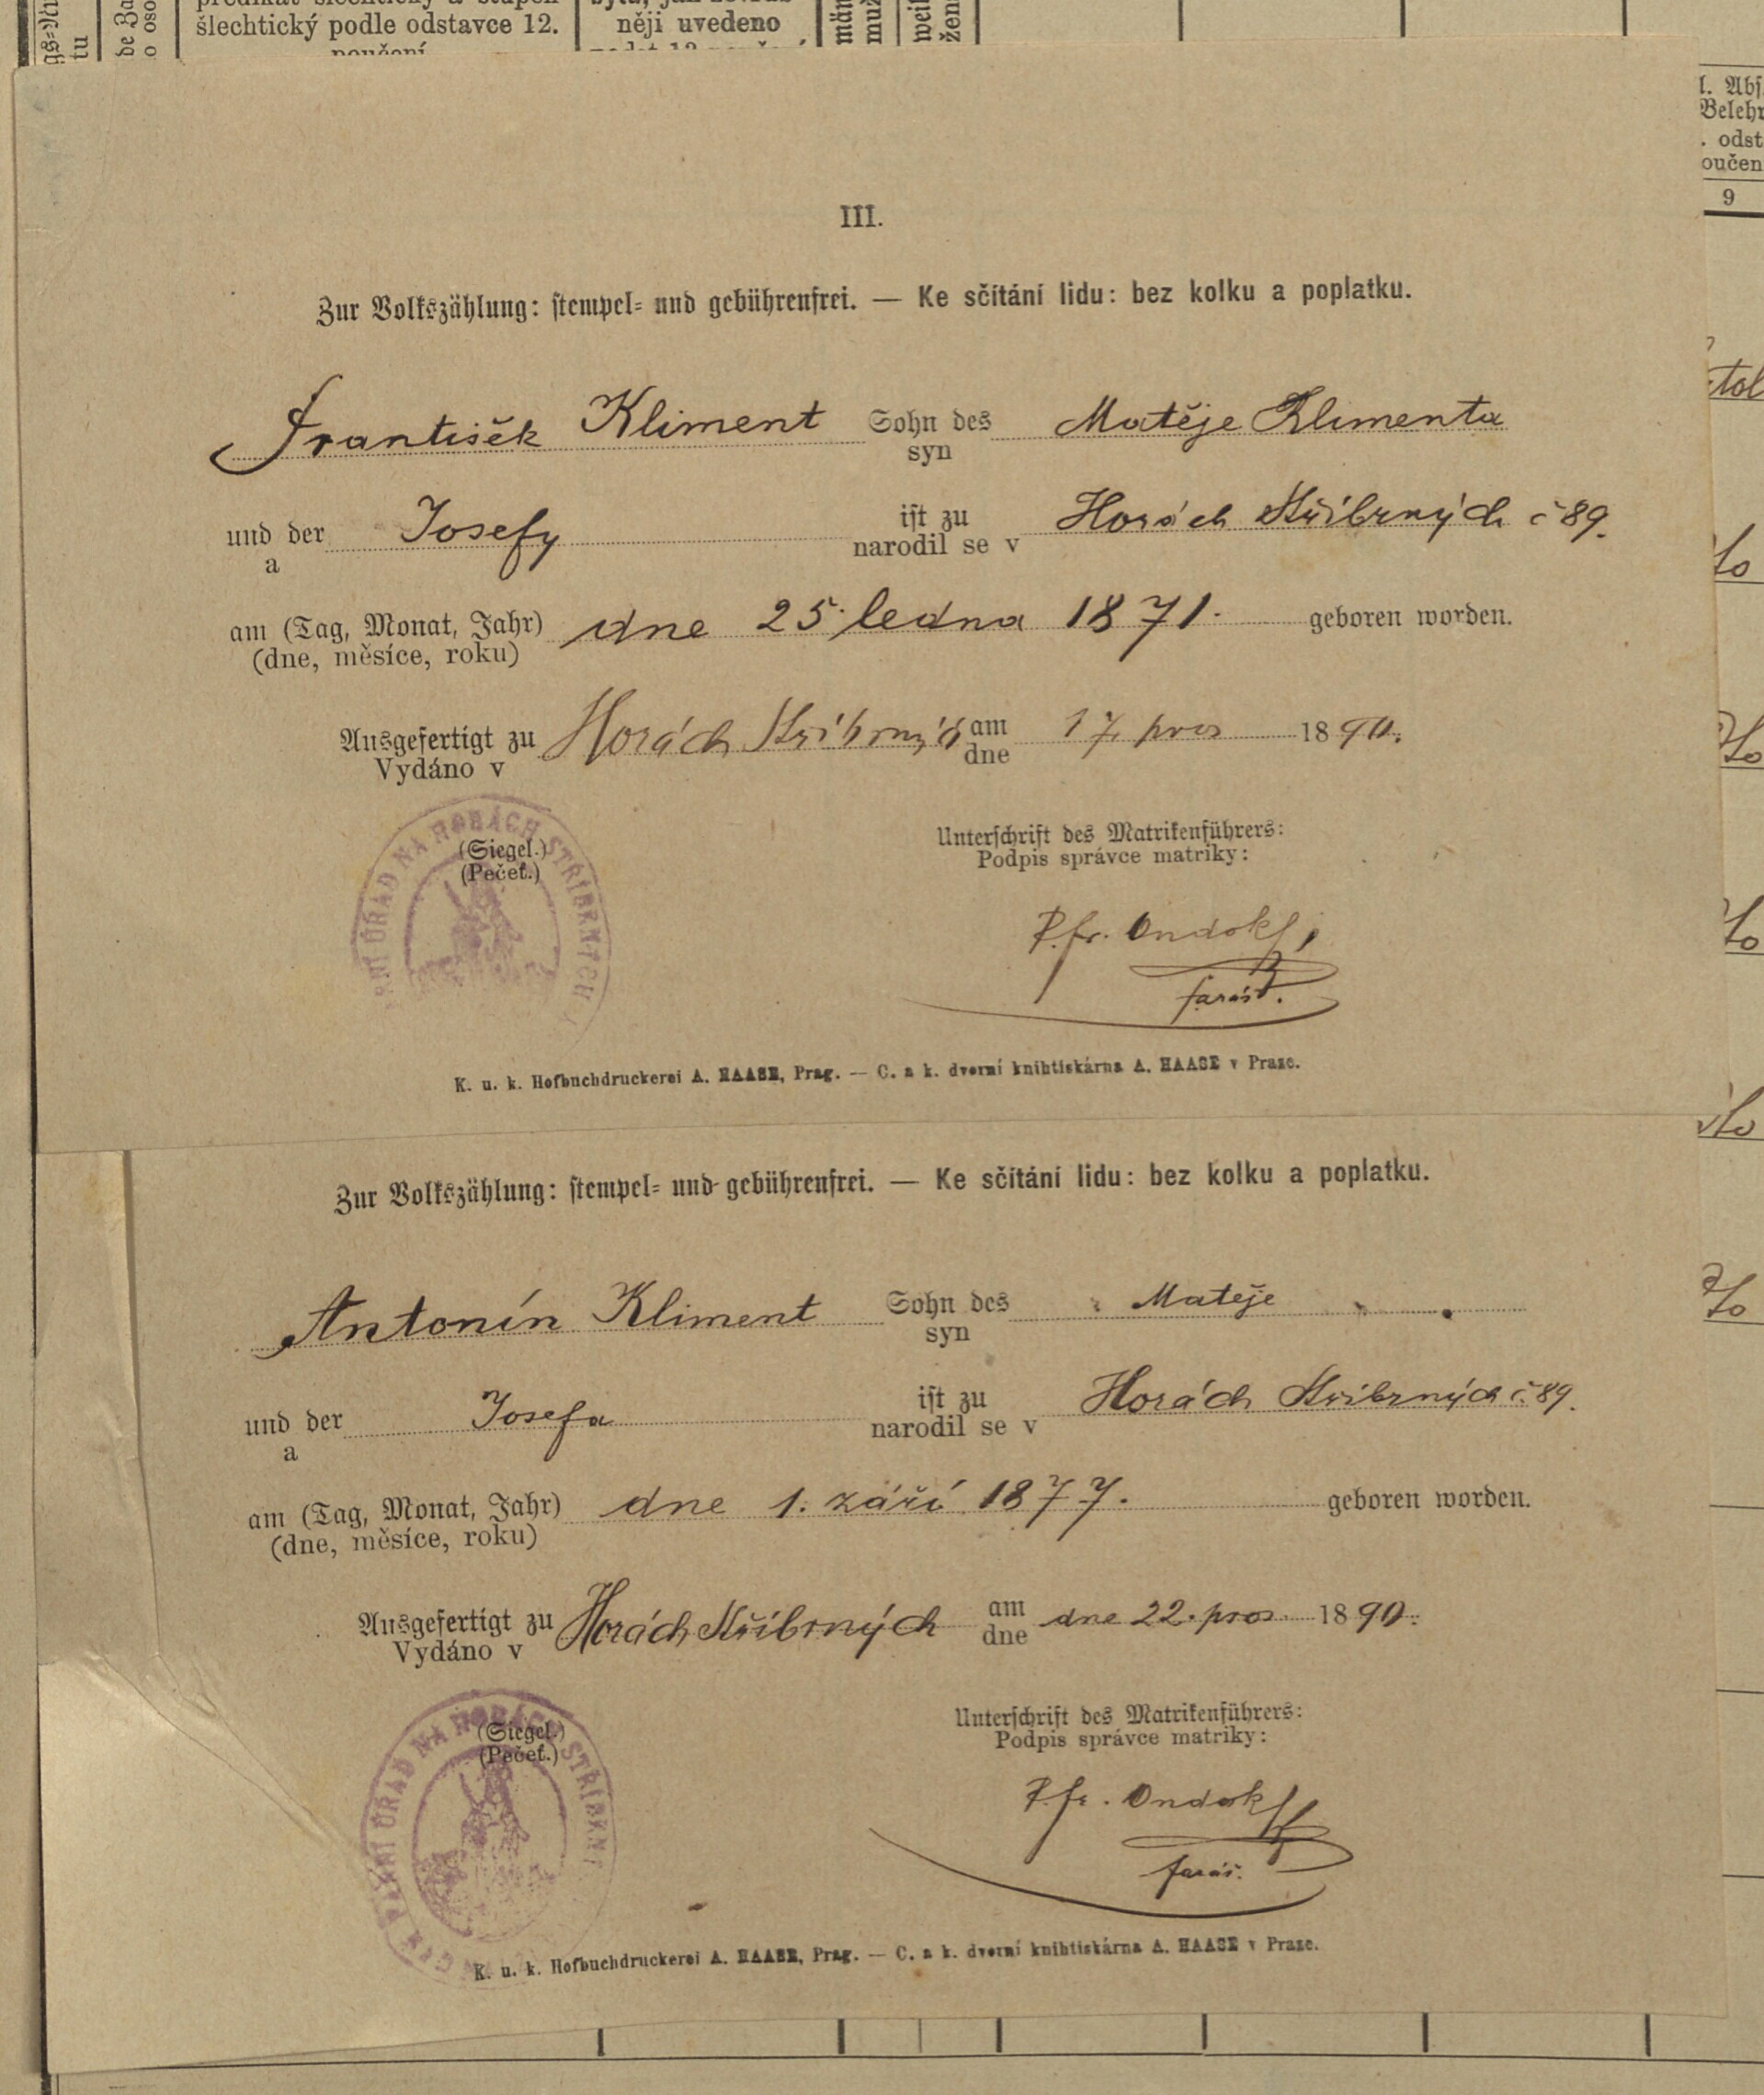 šlechtický podle odstavce 12.
něji uvedeno
l. Abs
Belehr
. odst
oučen
9
III.
Zur Volkszählung: stempel- und gebührenfrei. — Ke sčítání lidu: bez kolku a poplatku.
František Kliment Sohn des Matěje Klimenta
syn
und der Josefy ist zu Horách Stříbrných č 89.
a narodil se v
am (Tag, Monat, Jahr) dne 25. ledna 1871. geboren worden.
(dne, měsíce, roku)
Ausgefertigt zu Horách Stříbrných am 17. pros 1890.
Vydáno v dne
(Siegel.)
(Pečeť.)
Unterschrift des Matrikenführers:
Podpis správce matriky:
P. Fr. Ondok
farář.
K. u. k. Hofbuchdruckerei A. HAASE, Prag. — C. a k. dvorní knihtiskárna A. HAASE v Praze.
Zur Volkszählung: stempel- und gebührenfrei. — Ke sčítání lidu: bez kolku a poplatku.
Antonín Kliment Sohn des Matěje
syn
und der Josefa ist zu Horách Stříbrných č. 89.
a narodil se v
am (Tag, Monat, Jahr) dne 1. září 1877. geboren worden.
(dne, měsíce, roku)
Ausgefertigt zu Horách Stříbrných am dne 22. pros. 1890.
Vydáno v dne
(Siegel.)
(Pečeť.)
Unterschrift des Matrikenführers:
Podpis správce matriky:
P. Fr. Ondok
farář.
K. u. k. Hofbuchdruckerei A. HAASE, Prag. — C. a k. dvorní knihtiskárna A. HAASE v Praze.